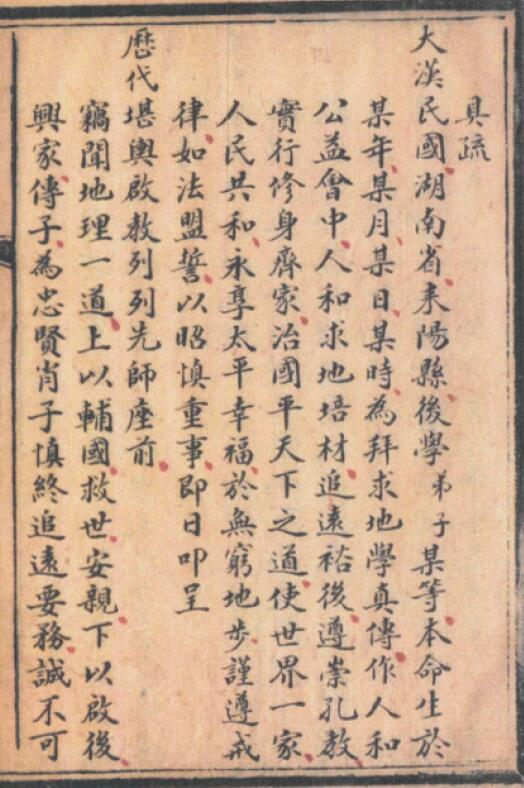 具疏
大漢民國湖南省耒陽縣後學弟子某等本命生於
某年某月某日某時為拜求地學真傳作人和
公益會中人和求地培材追遠裕後遵崇孔教
實行修身齊家治國平天下之道使世界一家
人民共和永享太平幸福於無窮地步謹遵戒
律如法盟誓以昭慎重事即日叩呈
歷代堪輿啟教列列先師座前
竊聞地理一道上以輔國救世安親下以啟後
興家傳子為忠賢肖子慎終追遠要務誠不可